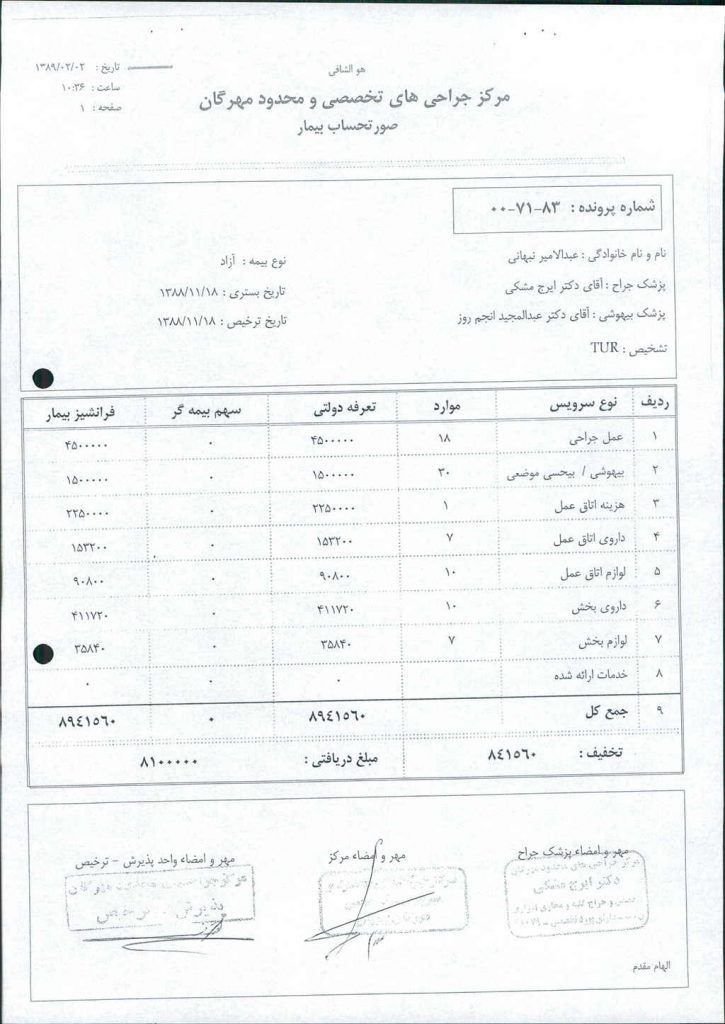 هو الشافی
مرکز جراحی های تخصصی و محدود مهرگان
صورتحساب بیمار
تاریخ : ۱۳۸۹/۰۲/۰۲
ساعت : ۱۰:۳۶
صفحه : ۱
شماره پرونده : ۸۳-۷۱-۰۰
نام و نام خانوادگی : عبدالامیر نبهانی
پزشک جراح : آقای دکتر ایرج مشکی
پزشک بیهوشی : آقای دکتر عبدالمجید انجم روز
تشخیص : TUR
نوع بیمه : آزاد
تاریخ بستری : ۱۳۸۸/۱۱/۱۸
تاریخ ترخیص : ۱۳۸۸/۱۱/۱۸
ردیف نوع سرویس موارد تعرفه دولتی سهم بیمه گر فرانشیز بیمار
۱ عمل جراحی ۱۸ ۴۵۰۰۰۰۰ ۰ ۴۵۰۰۰۰۰
۲ بیهوشی / بیحسی موضعی ۳۰ ۱۵۰۰۰۰۰ ۰ ۱۵۰۰۰۰۰
۳ هزینه اتاق عمل ۱ ۲۲۵۰۰۰۰ ۰ ۲۲۵۰۰۰۰
۴ داروی اتاق عمل ۷ ۱۵۳۲۰۰ ۰ ۱۵۳۲۰۰
۵ لوازم اتاق عمل ۱۰ ۹۰۸۰۰ ۰ ۹۰۸۰۰
۶ داروی بخش ۱۰ ۴۱۱۷۲۰ ۰ ۴۱۱۷۲۰
۷ لوازم بخش ۷ ۳۵۸۴۰ ۰ ۳۵۸۴۰
۸ خدمات ارائه شده ۰ ۰ ۰
۹ جمع کل ۸۹٤۱٥٦۰ ۰ ۸۹٤۱٥٦۰
تخفیف : ۸٤۱٥٦۰ مبلغ دریافتی : ۸۱۰۰۰۰۰
مهر و امضاء پزشک جراح
مهر و امضاء مرکز
مهر و امضاء واحد پذیرش - ترخیص
دکتر ایرج مشکی
پذیرش ترخیص
الهام مقدم